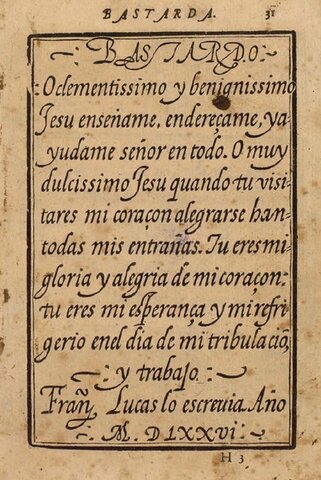 BASTARDA. 31
BASTARDO
O clementissimo y benignissimo
Jesu enseñame, endereçame, ya
yudame señor en todo. O muy
dulcissimo Jesu quando tu visi-
tares mi coraçon alegrarse han-
todas mis entrañas. Tu eres mi
gloria y alegria de mi coraçon:
tu eres mi esperança y mi refri-
gerio en el dia de mi tribulaciõ,
y trabajo
Frañ. Lucas lo escreuia Año
M. D LXXVI
H 3